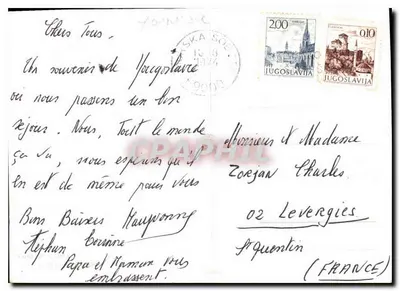 Chers Tous.
Un souvenir de Yougoslavie
où nous passons un bon
séjour. Nous, Tout le monde
ça va, nous espérons qu'il
en est de même pour vous
Bons Baisers
Stephan
Papa et Maman vous
embrassent.
2.00
JUGOSLAVIJA
0.10
JUGOSLAVIJA
Monsieur et Madame
Zorjan Charles
02 Levergies
St Quentin
(FRANCE)